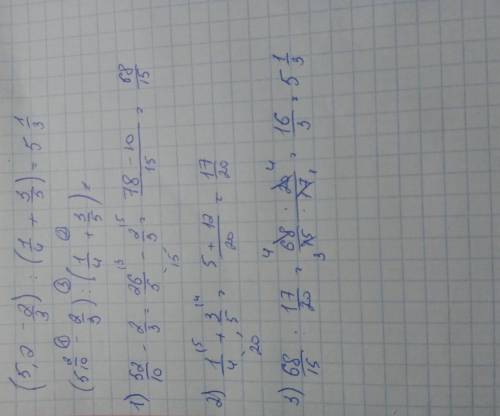 (5,2 - 2/3) : (1/4 + 3/5) = 5 1/3
(5 2/10 - 2/3) : (1/4 + 3/5) =
1) 52/10 - 2/3 = 26/5 - 2/3 = 78 - 10/15 = 68/15
2) 1/4 + 3/5 = 5 + 12/20 = 17/20
3) 68/15 : 17/20 = 68/15 · 20/17 = 16/3 = 5 1/3